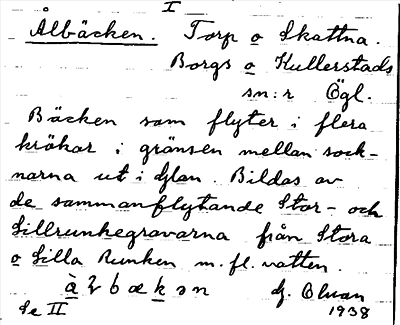 I
Ålbäcken. Torp o Skattna.
Borgs o Kullerstads
sn:r Ögl.
Bäcken som flyter i flera
krökar i gränsen mellan sock-
narna ut i Glan. Bildas av
de sammanflytande Stor- och
Lillrunkegravarna från Stora
o Lilla Runken m. fl. vatten.
Se II
1938